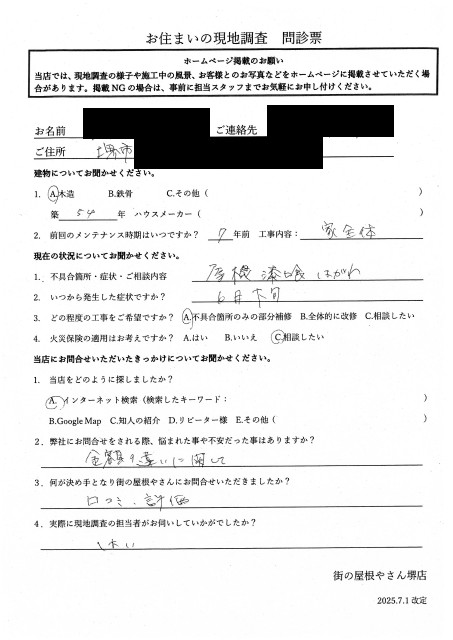 お住まいの現地調査 問診票
ホームページ掲載のお願い
当店では、現地調査の様子や施工中の風景、お客様とのお写真などをホームページに掲載させていただく場
合があります。掲載NGの場合は、事前に担当スタッフまでお気軽にお申し付けください。
お名前 ご連絡先
ご住所 堺市
建物についてお聞かせください。
1. A.木造 B.鉄骨 C.その他( )
築 54 年 ハウスメーカー( )
2. 前回のメンテナンス時期はいつですか? 7 年前 工事内容: 家全体
現在の状況についてお聞かせください。
1. 不具合箇所・症状・ご相談内容 屋根 漆喰 はがれ
2. いつから発生した症状ですか? 6月下旬
3. どの程度の工事をご希望ですか? A.不具合箇所のみの部分補修 B.全体的に改修 C.相談したい
4. 火災保険の適用はお考えですか? A.はい B.いいえ C.相談したい
当店にお問合せいただいたきっかけについてお聞かせください。
1. 当店をどのように探しましたか?
A.インターネット検索(検索したキーワード: )
B.Google Map C.知人の紹介 D.リピーター様 E.その他( )
2.弊社にお問合せをされる際、悩まれた事や不安だった事はありますか?
金額の違いに関して
3.何が決め手となり街の屋根やさんにお問合せいただきましたか?
口コミ、評価
4.実際に現地調査の担当者がお伺いしていかがでしたか?
街の屋根やさん堺店
2025.7.1 改定